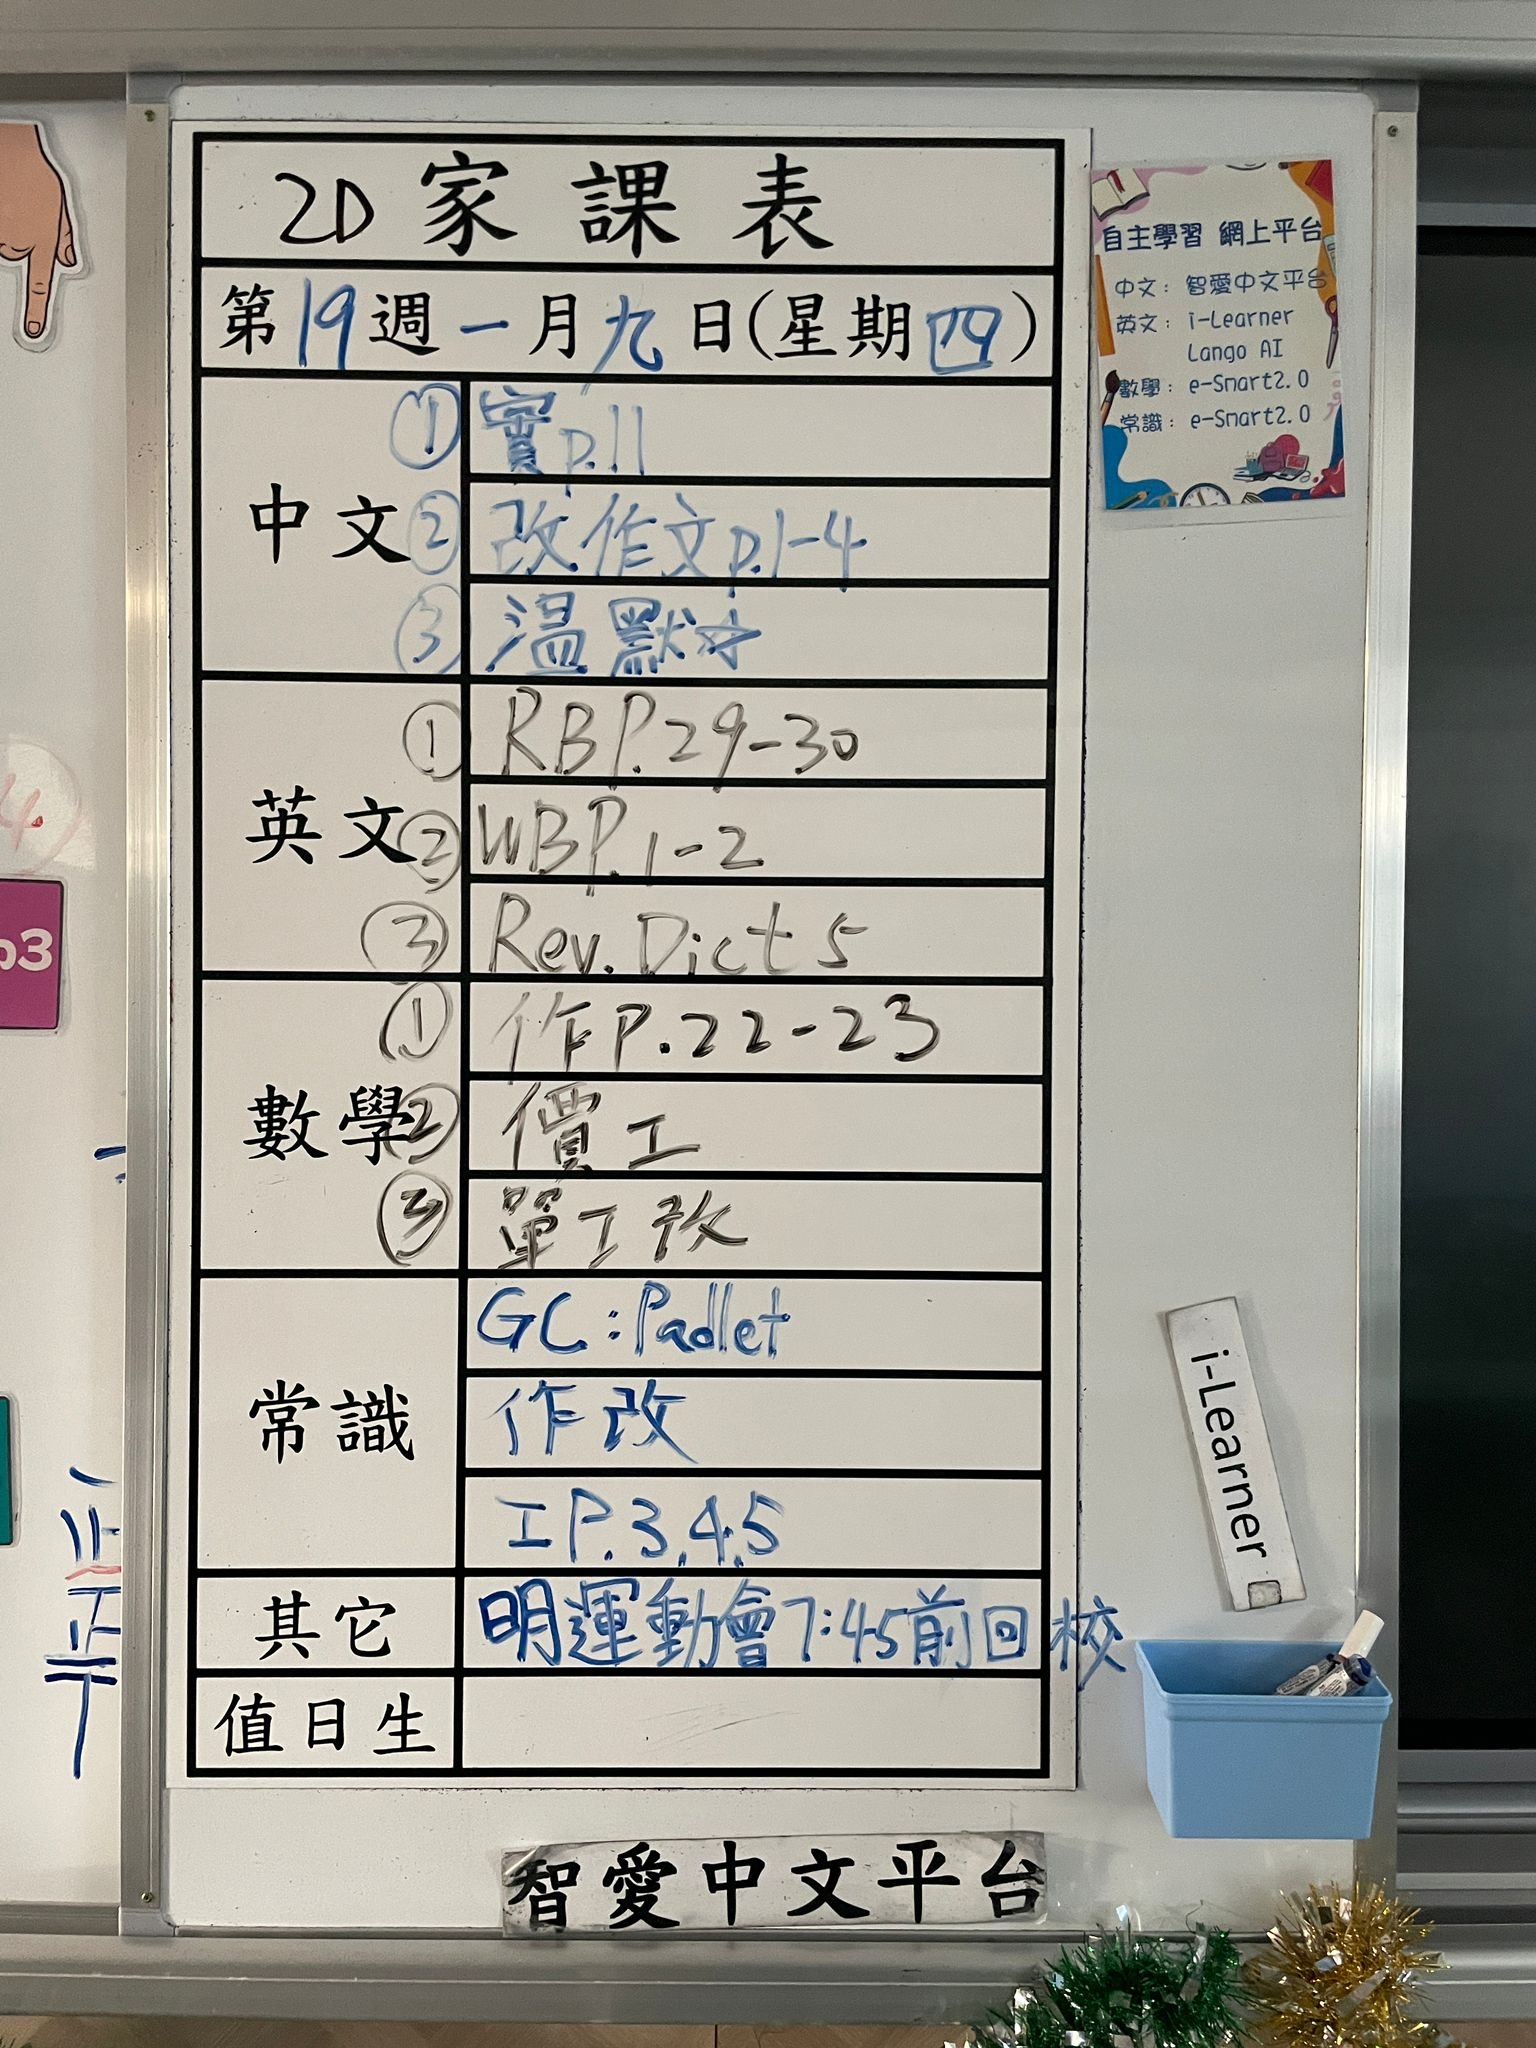 2D 家課表
第19週一月九日(星期四)
中文
① 實p.11
② 改作文p.1-4
③ 溫默☆
英文
① RB P.29-30
② WB P.1-2
③ Rev. Dict 5
數學
① 作P.22-23
② 價工
③ 單工改
常識
GC:Padlet
作改
工P.3,4,5
其它
明運動會7:45前回校
值日生
智愛中文平台
自主學習 網上平台
中文:智愛中文平台
英文:i-Learner
Lango AI
數學:e-Smart2.0
常識:e-Smart2.0
i-Learner
4.
p3